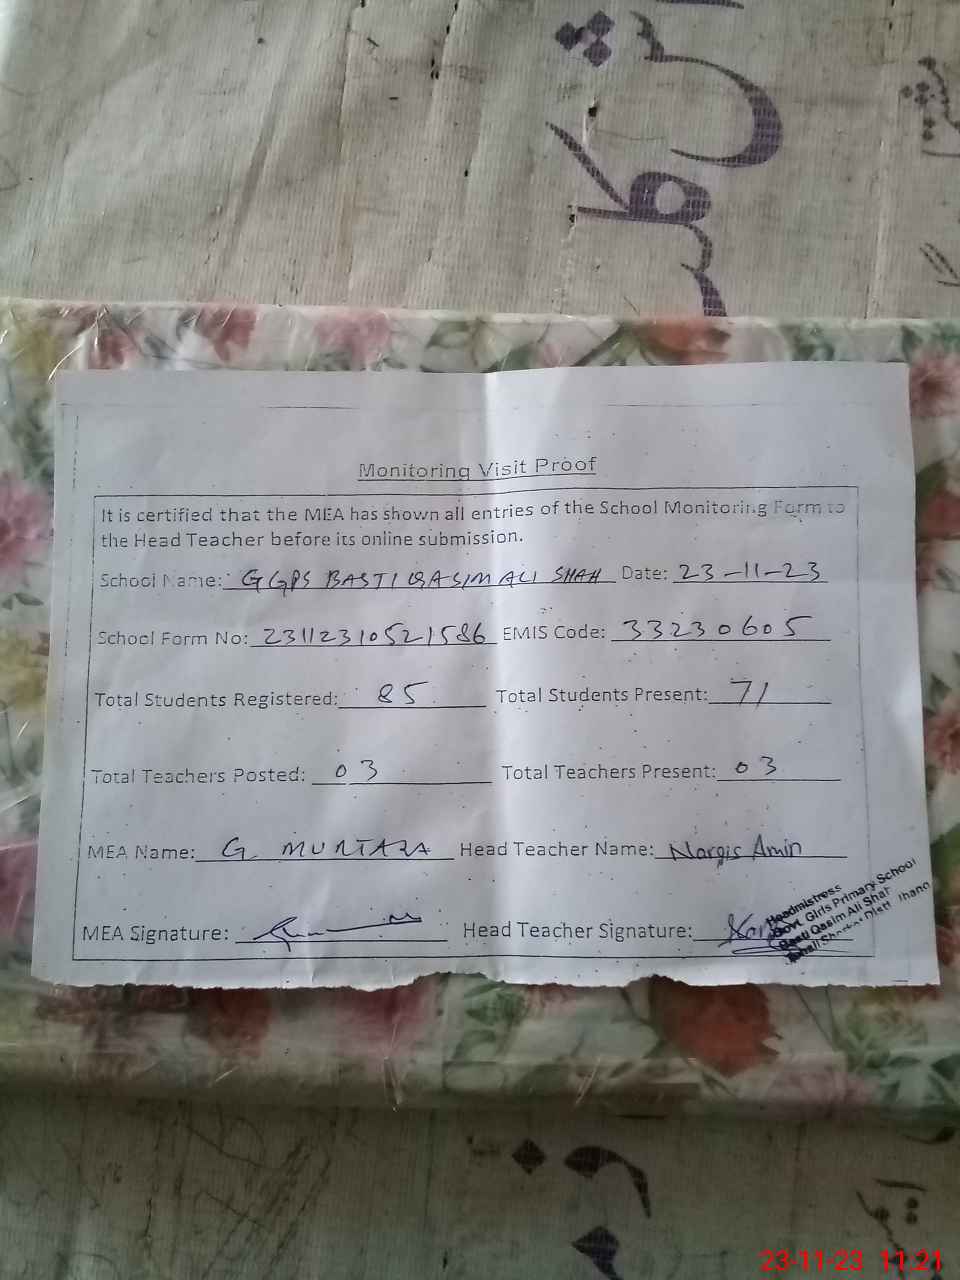 Monitoring Visit Proof
It is certified that the MEA has shown all entries of the School Monitoring Form to
the Head Teacher before its online submission.
School Name: GGPS BASTI QASIM ALI SHAH Date: 23-11-23
School Form No: 23112310521586 EMIS Code: 33230605
Total Students Registered: 85 Total Students Present: 71
Total Teachers Posted: 03 Total Teachers Present: 03
MEA Name: G. MURTAZA Head Teacher Name: Nargis Amin
MEA Signature: Head Teacher Signature:
Headmistress
Govt. Girls Primary School
Basti Qasim Ali Shah
23-11-23 11:21